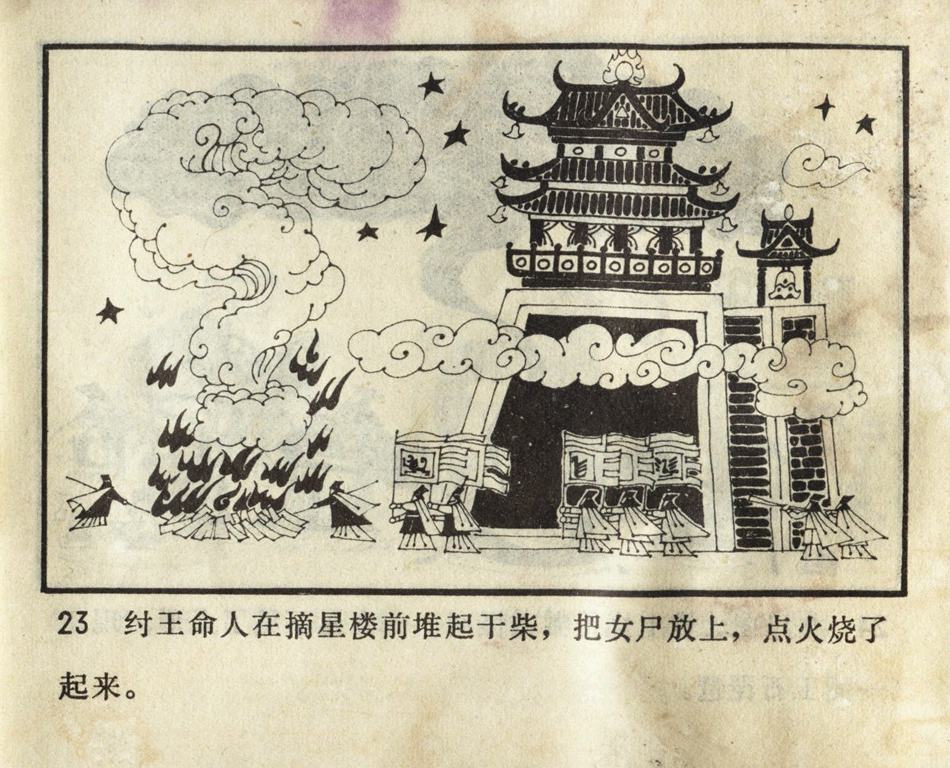 23 纣王命人在摘星楼前堆起干柴，把女尸放上，点火烧了
起来。